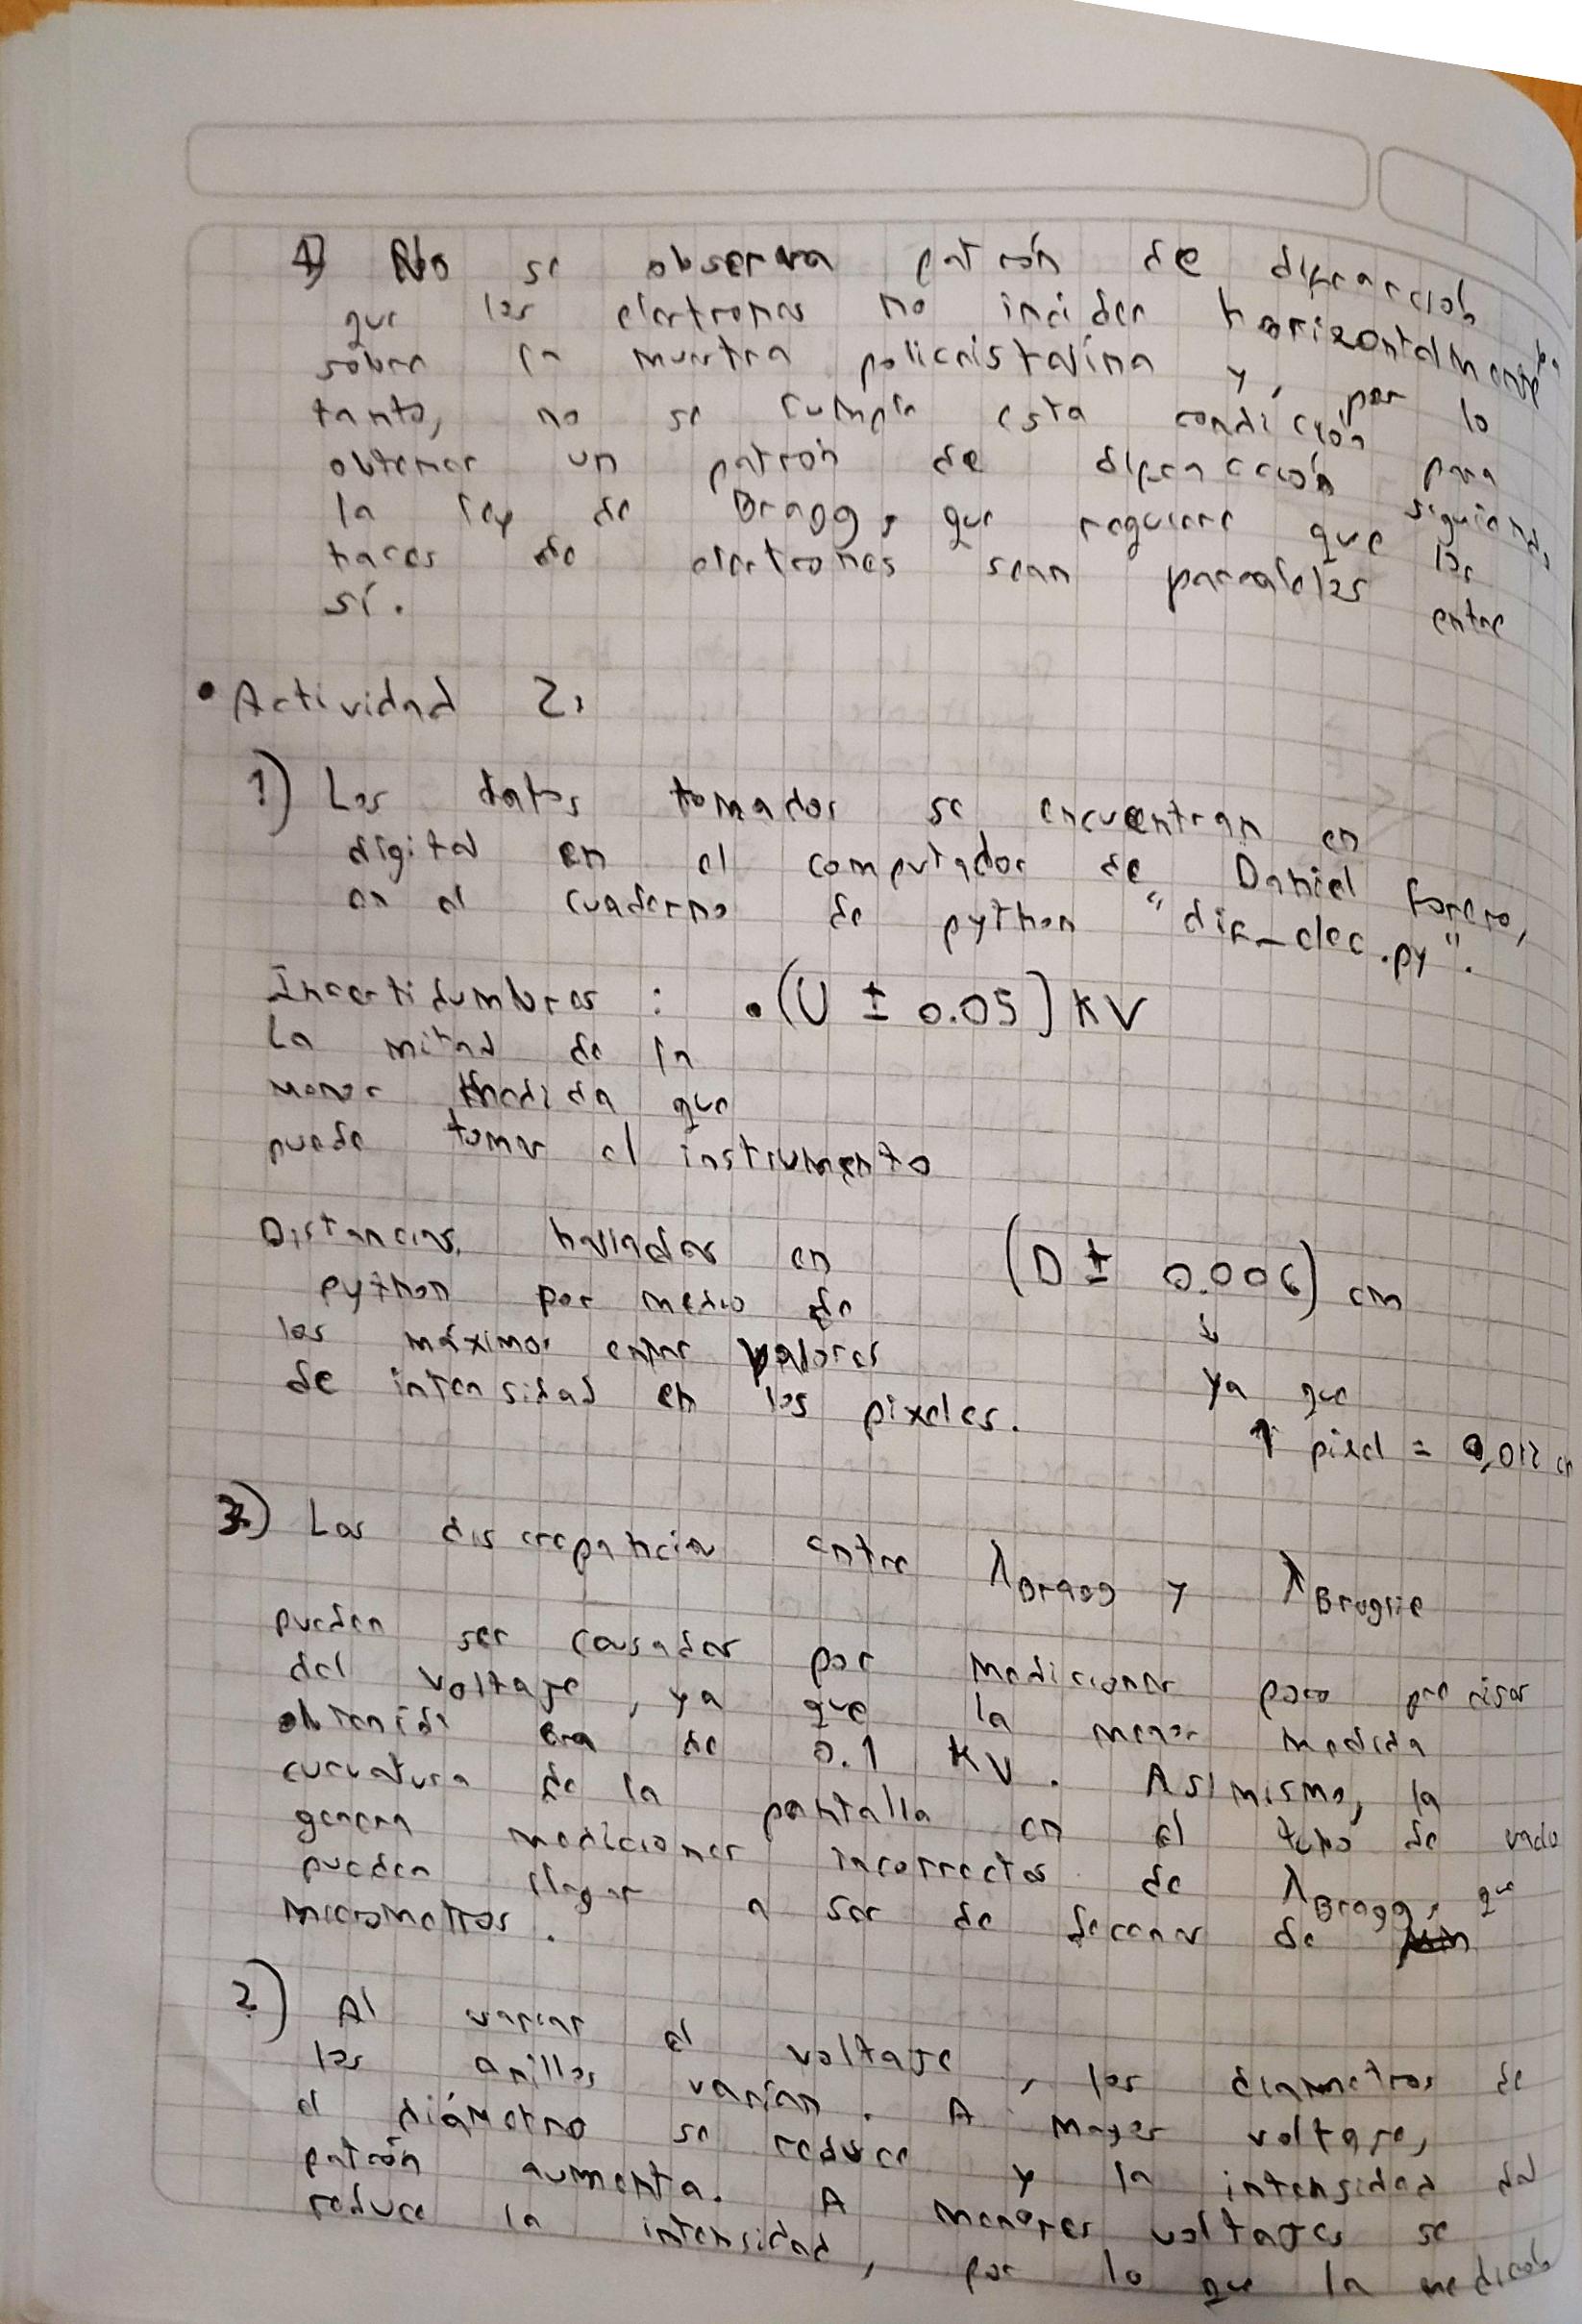 4) No se observa patrón de difracción ya
que los electrones no inciden horizontalmente
sobre la muestra policristalina y, por lo
tanto, no se cumple esta condición para
obtener un patrón de difracción siguiendo
la ley de Bragg, que requiere que los
haces de electrones sean paralelos entre
sí.
• Actividad 2.
1) Los datos tomados se encuentran en
digital en el computador de Daniel Forero,
en el cuaderno de python "dif_elec.py".
Incertidumbres : • (U ± 0.05) kV
La mitad de la
menor medida que
puede tomar el instrumento
Distancias halladas en (D ± 0.006) cm
python por medio de ↓
los máximos entre valores ya que
de intensidad en los pixeles. 1 pixel = 0,012 cm
3.) Las discrepancias entre λBragg y λBroglie
pueden ser causadas por mediciones poco precisas
del voltaje, ya que la menor medida
obtenida era de 0.1 kV. Asimismo, la
curvatura de la pantalla en el tubo de vacío
genera mediciones incorrectas de λBragg, que
pueden llegar a ser de decenas de
micrometros.
2) Al variar el voltaje, los diametros de
los anillos varían. A mayor voltaje,
el diámetro se reduce y la intensidad del
patrón aumenta. A menores voltajes se
reduce la intensidad, por lo que la medición